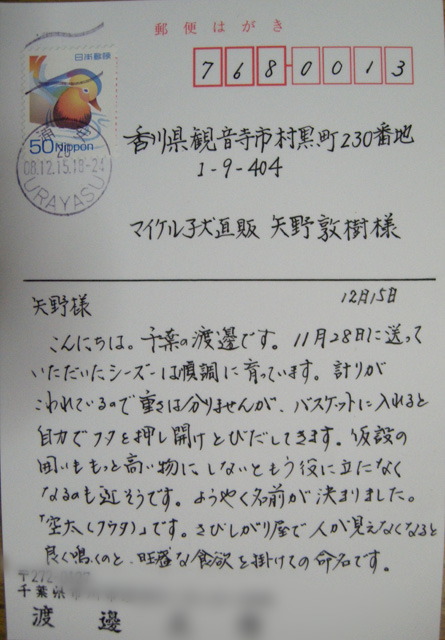 郵便はがき
日本郵便
50 NIPPON
08.12.15.18-24
URAYASU
768-0013
香川県観音寺市村黒町230番地
1-9-404
マイケル子犬直販 矢野敦樹様
矢野様
12月15日
こんにちは。千葉の渡邊です。11月28日に送って
いただいたシーズーは順調に育っています。計りが
こわれているので重さは分りませんが、バスケットに入れると
自力でフタを押し開けとびだしてきます。仮設の
囲いももっと高い物にしないともう役に立たなく
なるのも近そうです。ようやく名前が決まりました。
「空太(クウタ)」です。さびしがり屋で人が見えなくなると
良く鳴くのと、旺盛な食欲を掛けての命名です。
〒272
千葉県
渡邊